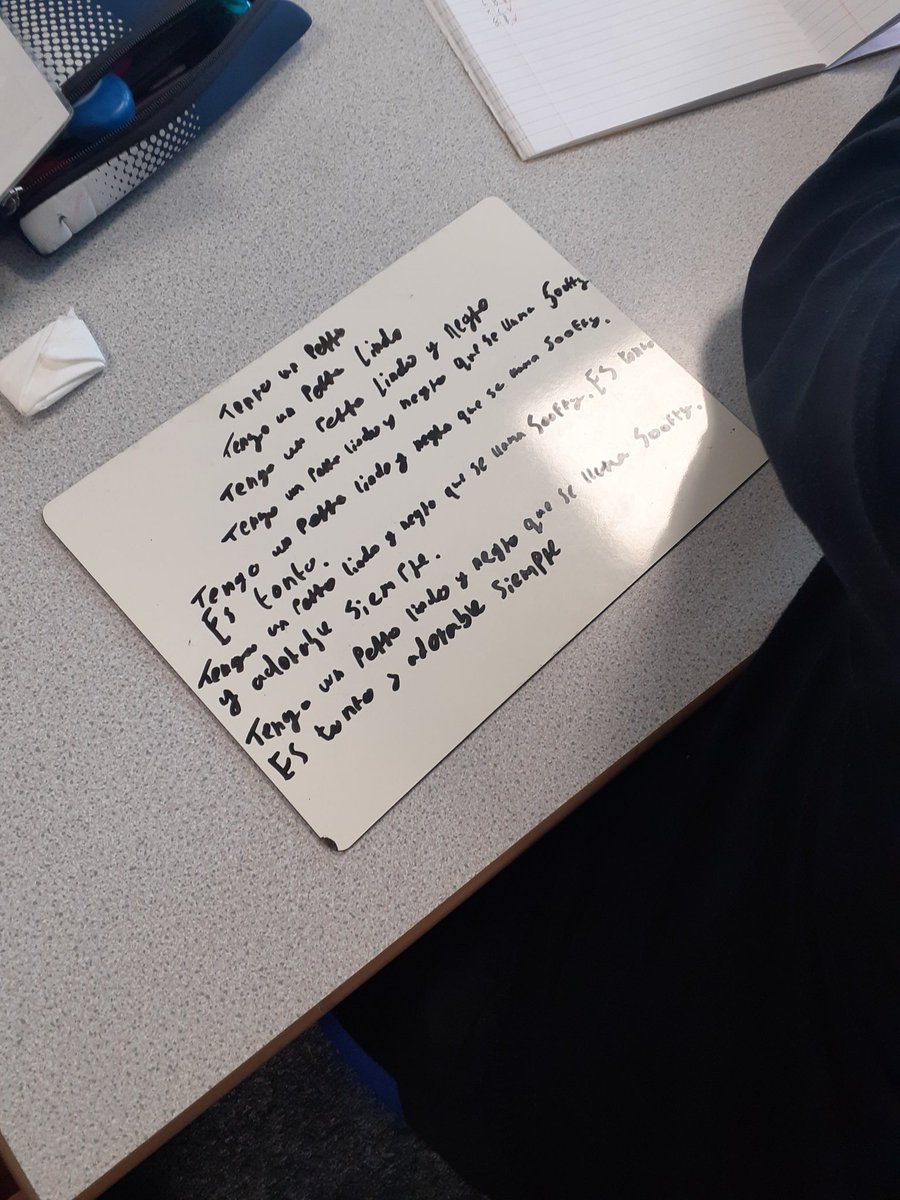 Tengo un Perro
Tengo un Perro Lindo
Tengo un Perro Lindo y Negro
Tengo un Perro lindo y negro que se llama Sooty.
Tengo un Perro lindo y negro que se llama Sooty.
ES tonto.
Tengo un Perro lindo y negro que se llama Sooty. ES tonto
y adorable siempre.
Tengo un Perro lindo y negro que se llama Sooty.
ES tonto y adorable siempre